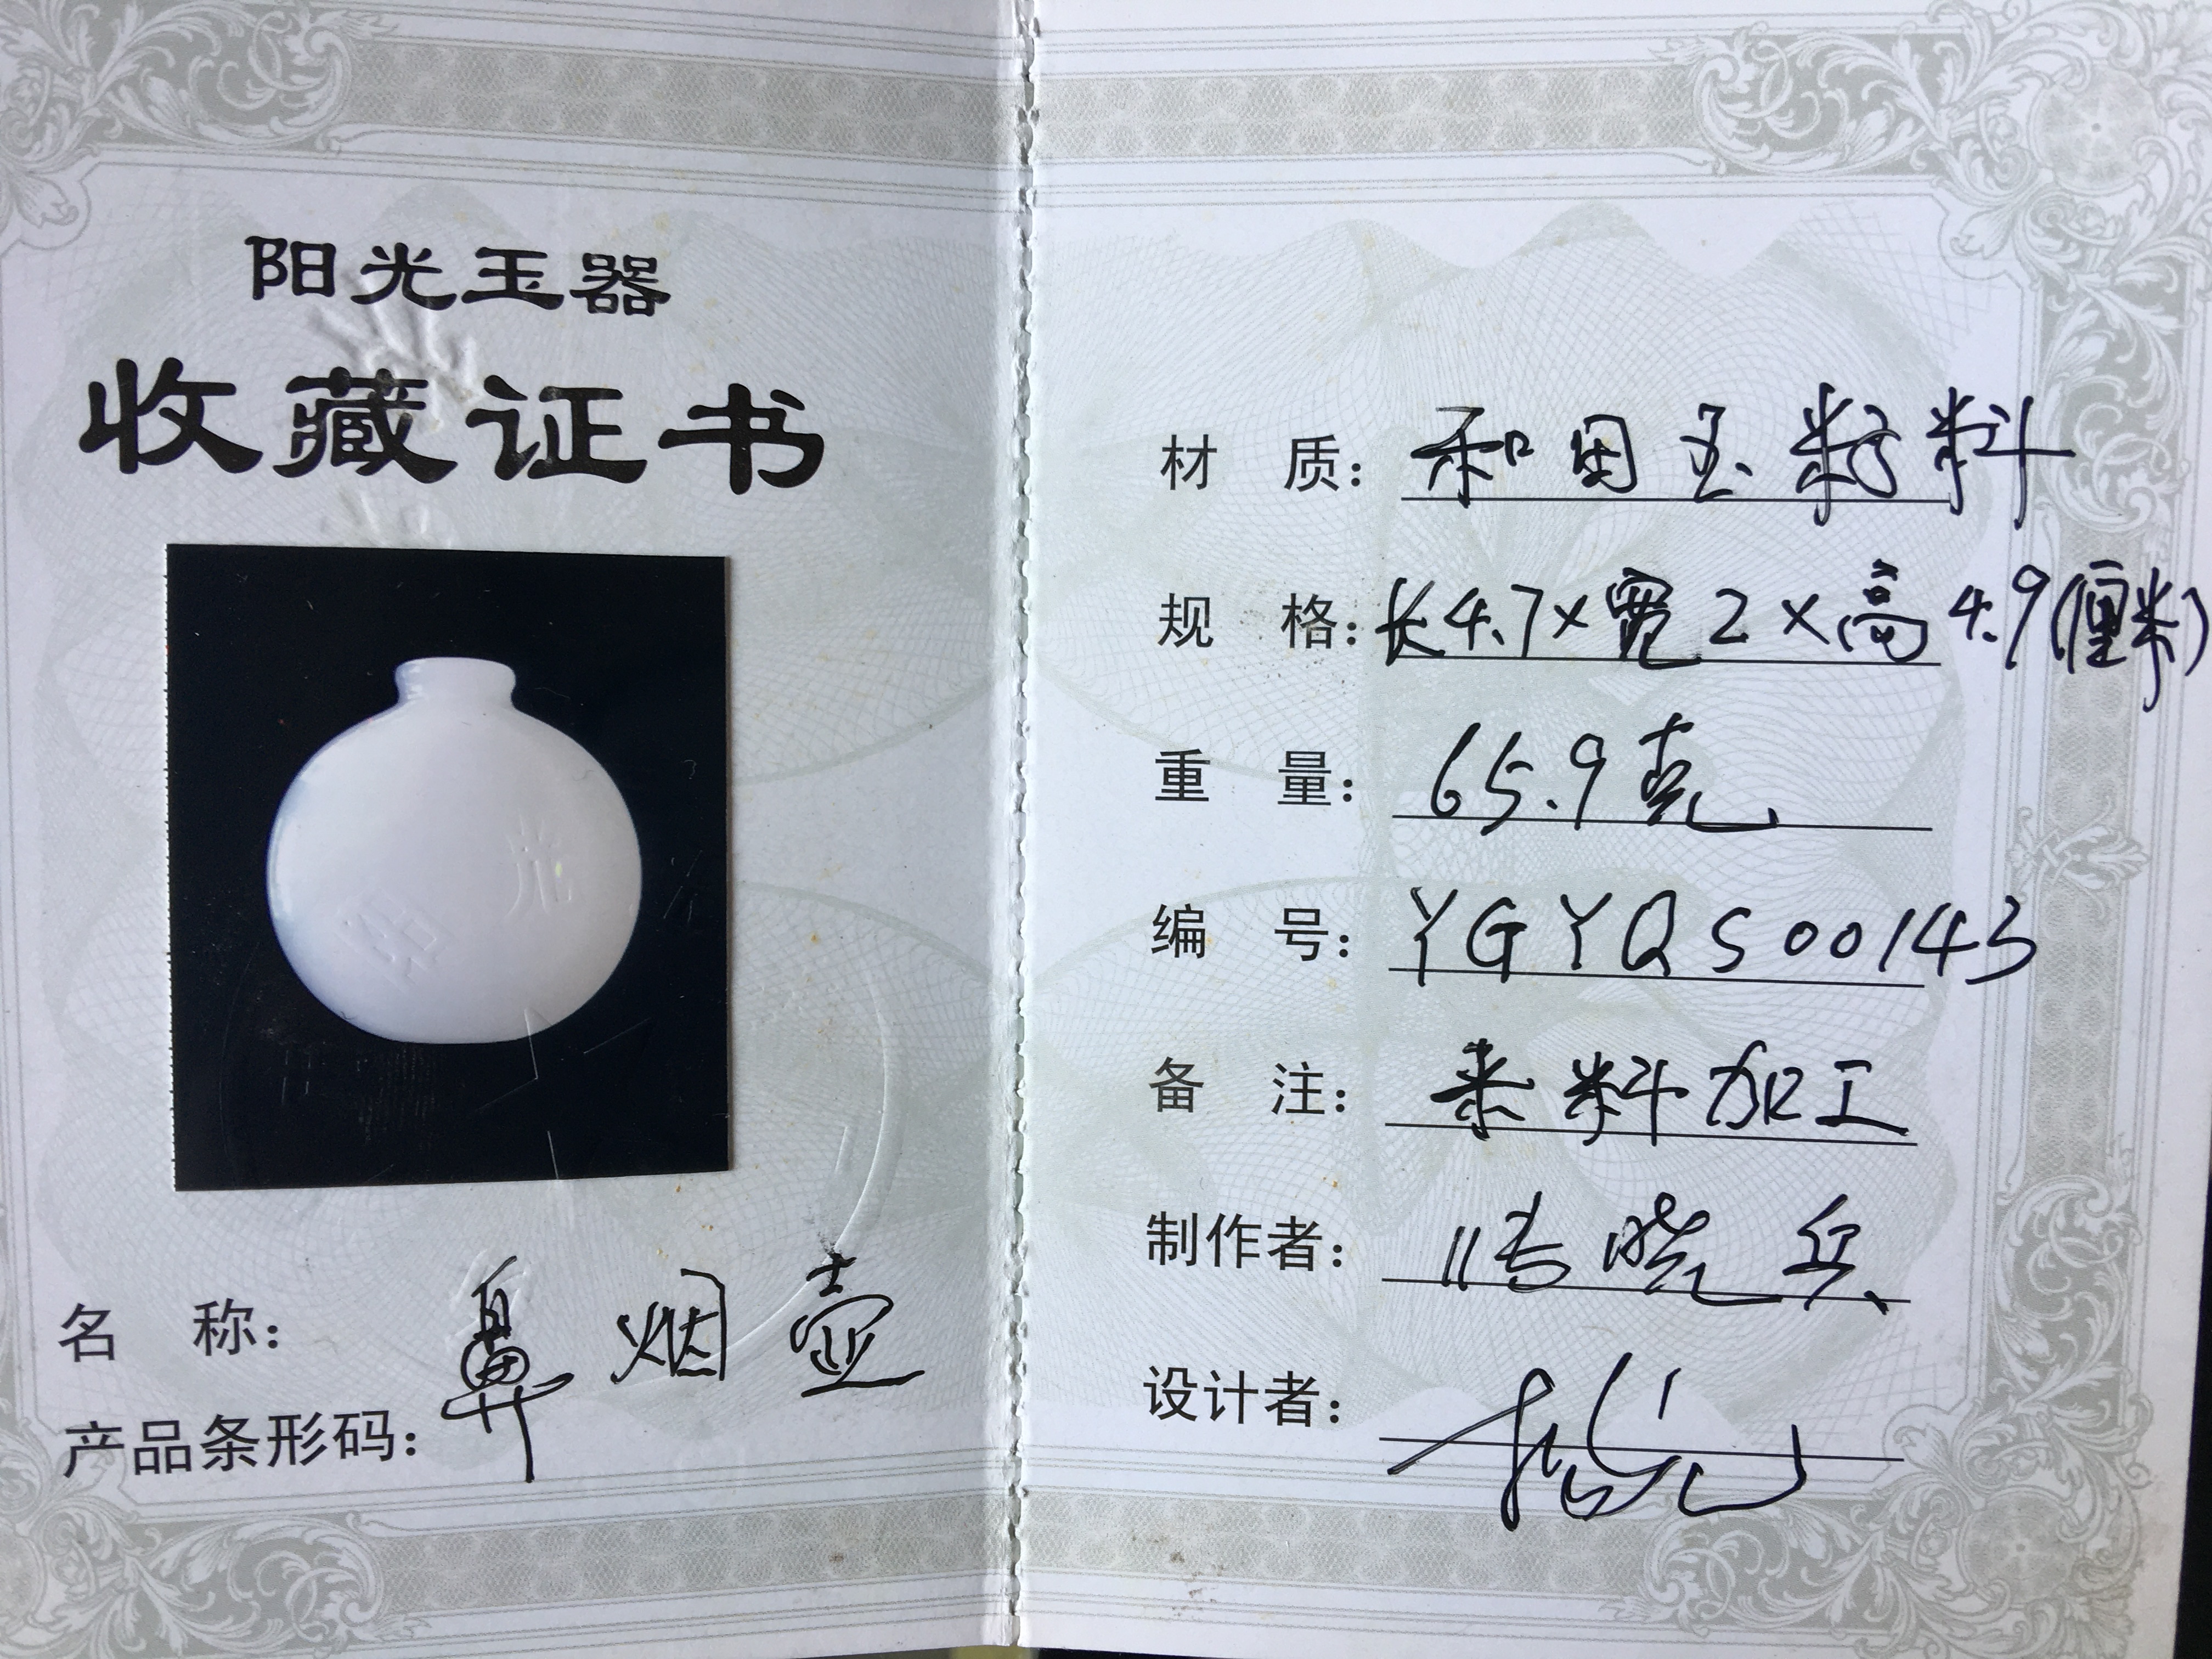 阳光玉器
收藏证书
名 称: 鼻烟壶
产品条形码:
材 质: 和田玉籽料
规 格: 长4.7×宽2×高4.9(厘米)
重 量: 65.9克
编 号: YGYQS00143
备 注: 来料加工
制作者: 晓兵
设计者: